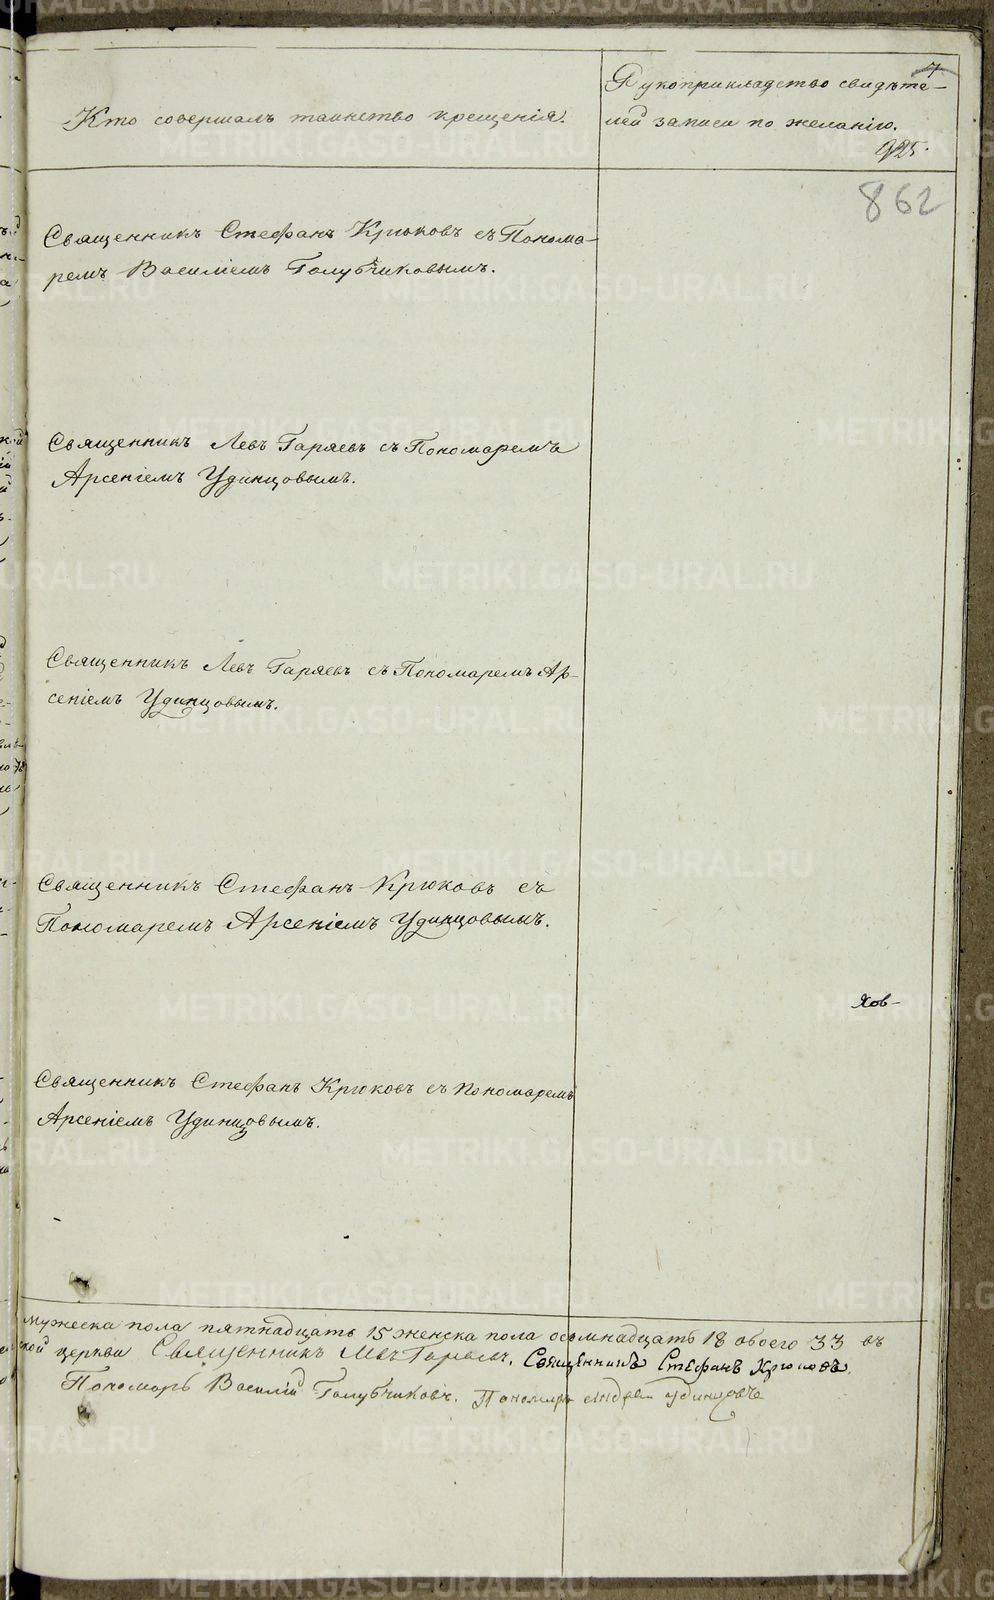 Кто совершалъ таинство крещенія.
7
Рукоприкладство свидѣте-
лей записи по желанію.
925.
862
Священникъ Стефанъ Крюковъ съ Понома-
ремъ Василіемъ Голубчиковымъ.
Священникъ Левъ Гаряевъ съ Пономаремъ
Арсеніемъ Удинцовымъ.
Священникъ Левъ Гаряевъ съ Пономаремъ Ар-
сеніемъ Удинцовымъ.
Священникъ Стефанъ Крюковъ съ
Пономаремъ Арсеніемъ Удинцовымъ.
Священникъ Стефанъ Крюковъ съ Пономаремъ
Арсеніемъ Удинцовымъ.
мужеска пола пятнадцать 15 женска пола осьмнадцать 18 обоего 33 въ
церкви Священникъ Левъ Гаряевъ. Священникъ Стефанъ Крюковъ.
Пономарь Василій Голубчиковъ. Пономарь Удинцовъ
METRIKI.GASO-URAL.RU